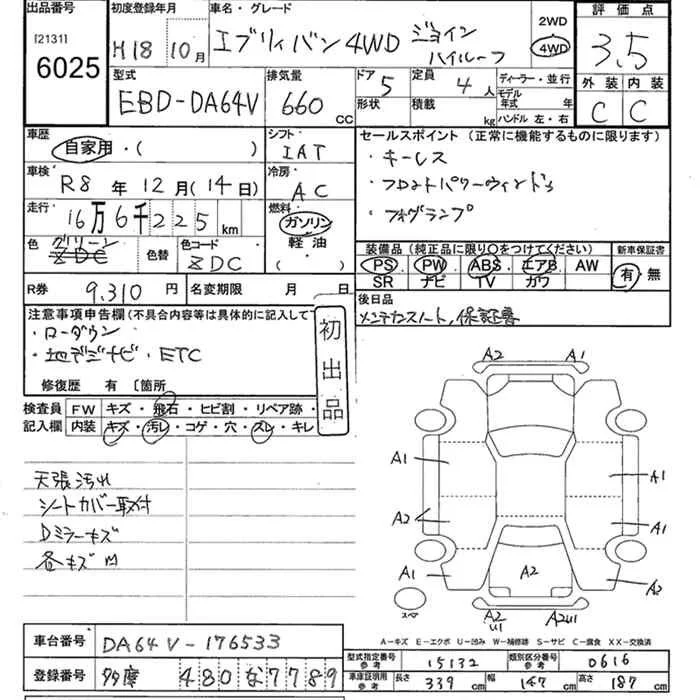 出品番号 初度登録年月 車名・グレード 2WD 評価点
[2131] 6025 H18 10月 エブリィバン 4WD ジョイン ハイルーフ 4WD 3.5
型式 排気量 ドア 5 定員 4人 ディーラー・並行 外装 内装
EBD-DA64V 660 CC 形状 積載 kg モデル年式 年 ハンドル 左・右 C C
車歴 シフト セールスポイント (正常に機能するものに限ります)
自家用・( ) IAT ・キーレス
車検 R8年12月(14日) 冷房 AC ・フロントパワーウィンドゥ
走行 16万6千225km 燃料 ガソリン ・フォグランプ
軽油 ( )
色 グリーン ZDC 色替 色コード ZDC
装備品 (純正品に限り○をつけてください) 新車保証書
PS PW ABS エアB AW 有・無
SR ナビ TV カワ
R券 9.310円 名変期限 月 日
後日品
メンテナンスノート,保証書
注意事項申告欄(不具合内容等は具体的に記入して
・ローダウン
・地デジナビ・ETC
初出品
修復歴 有 〔箇所
検査員記入欄 FW キズ・飛石・ヒビ割・リペア跡・
内装 キズ・汚レ・コゲ・穴・スレ・キレ
天張汚れ
シートカバー取付
Dミラーキズ
各キズM
A2 A1
A1 A1
A2 A1
A1 A2 A2
スペ A2 U1 A2U1
A-キズ E-エクボ U-凹み W-補修跡 S-サビ C-腐食 XX-交換済
車台番号 DA64V-176533
型式指定番号 参考 15132 類別区分番号 参考 0616
登録番号 多摩 480な7789
車庫証明用 参考 長さ 339cm 幅 147cm 高さ 187cm